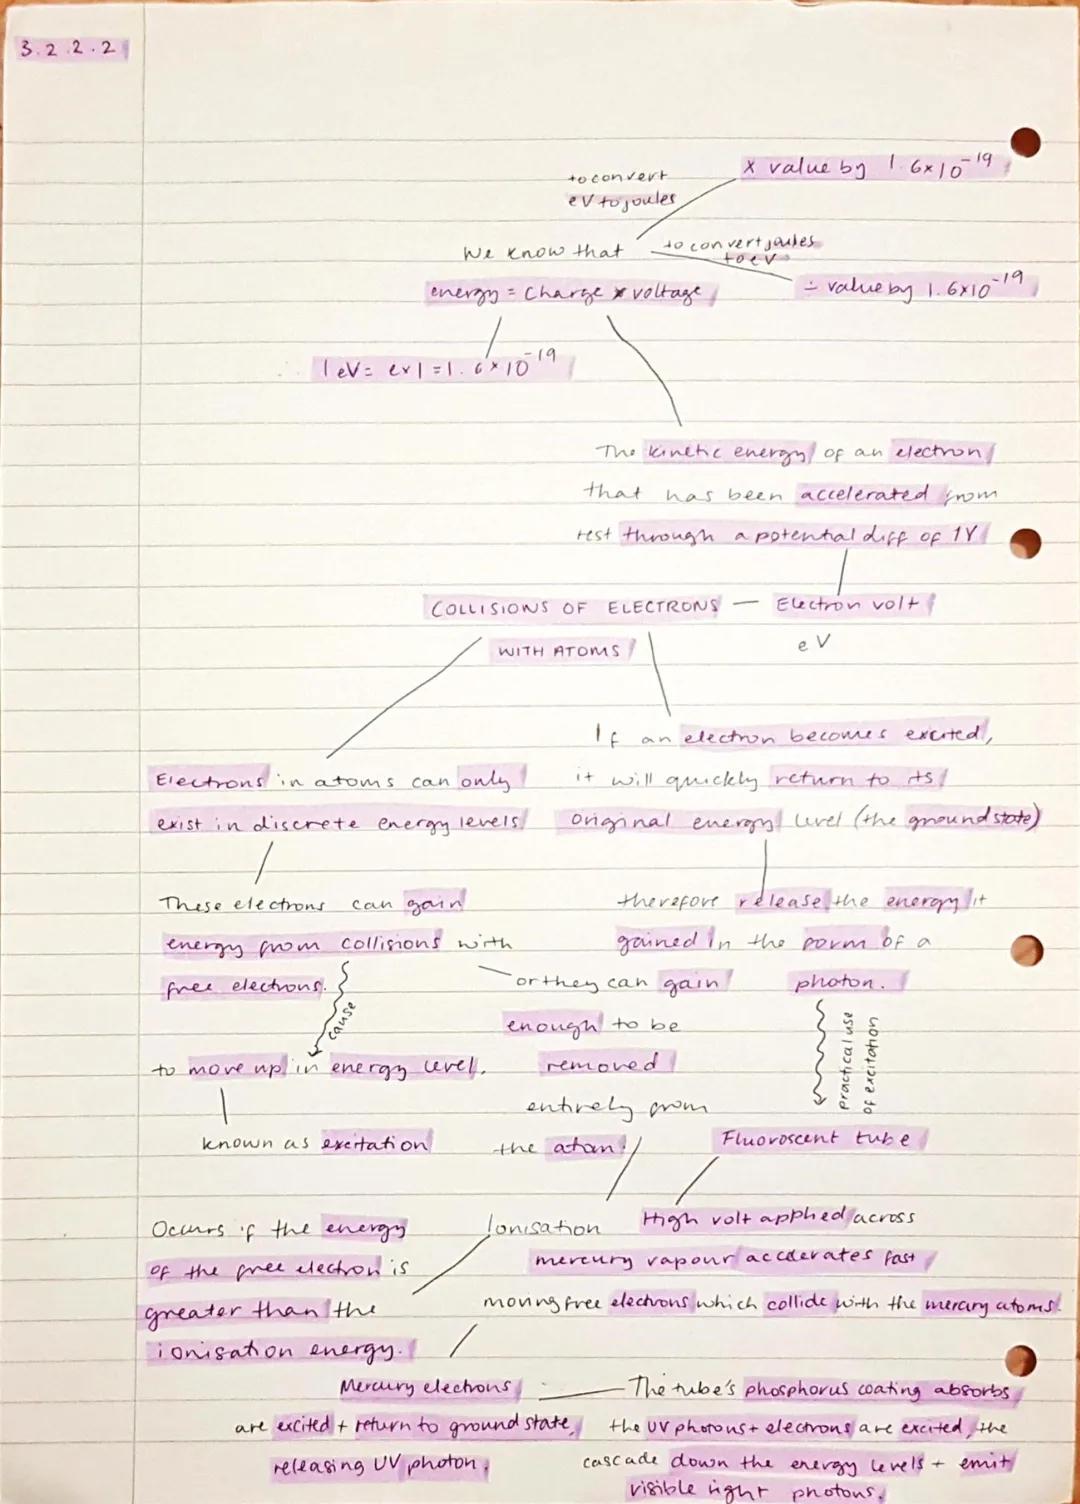 3.2.2.2
x value by 1.6×10⁻¹⁹
to convert
eV to joules
We know that
to convert joules
to eV
energy = Charge x voltage
÷ value by 1.6×10⁻¹⁹
1eV = e×1 = 1.6×10⁻¹⁹
The kinetic energy of an electron
that has been accelerated from
rest through a potential diff of 1V
COLLISIONS OF ELECTRONS
WITH ATOMS
Electron volt
eV
Electrons in atoms can only
exist in discrete energy levels
If an electron becomes excited,
it will quickly return to its
original energy level (the ground state)
These electrons can gain
energy from collisions with
free electrons.
cause
to move up in energy level.
known as excitation
or they can gain
enough to be
removed
entirely from
the atom.
therefore release the energy it
gained in the form of a
photon.
Practical use
of excitation
Fluoroscent tube
Occurs if the energy
of the free electron is
greater than the
ionisation energy.
Ionisation
High volt applied across
mercury vapour accelerates fast
moving free electrons which collide with the mercury atoms.
Mercury electrons
are excited + return to ground state,
releasing UV photon.
The tube's phosphorus coating absorbs
the UV photons + electrons are excited, the
cascade down the energy levels + emit
visible light photons.